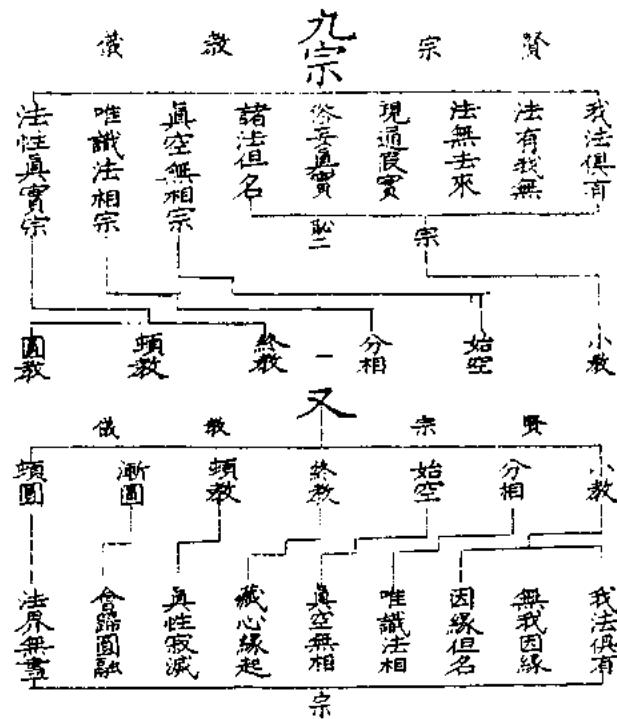 賢宗教儀
九宗
我法俱有
法有我無
法無去來
現通假實
俗妄真實
諸法但名
真空無相宗
唯識法相宗
法性真實宗
宗
恥二
小教
始空
分相
終教
頓教
圓教
一
又
賢宗教儀
小教
始空
分相
終教
頓教
漸圓
頓圓
我法俱有
無我因緣
因緣但名
唯識法相
真空無相
藏心緣起
真性寂滅
會歸圓融
法界無盡
宗